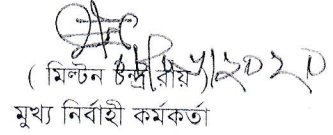 ( মিল্টন চন্দ্র রায় )
মুখ্য নির্বাহী কর্মকর্তা